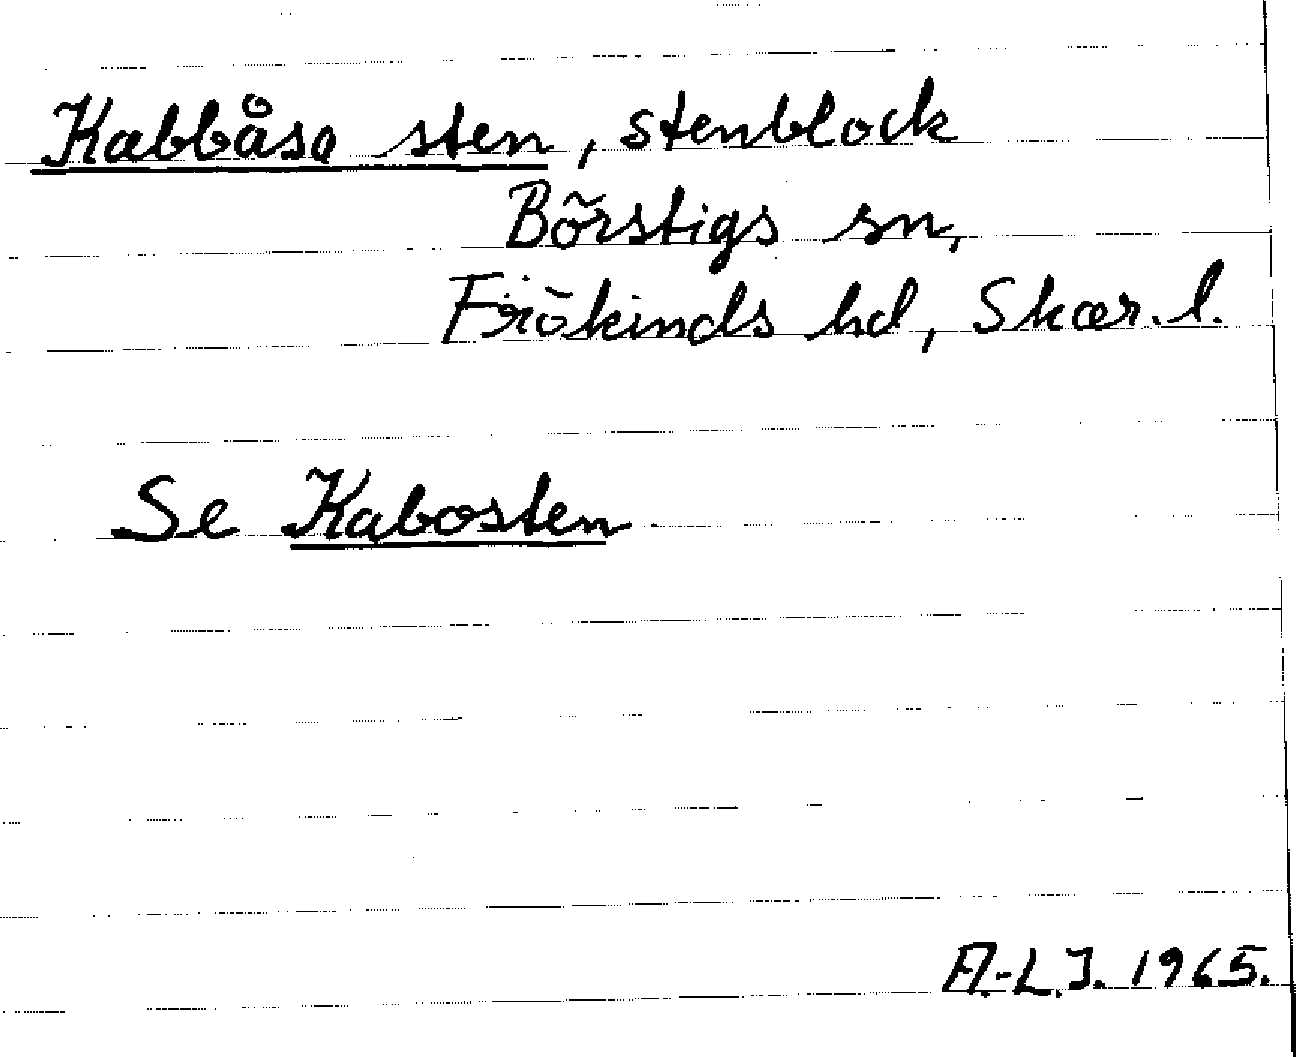 Kabbåsa sten, stenblock
Börstigs sn,
Frökinds hd, Skar. l.
Se Kabosten
A.-L.J. 1965.